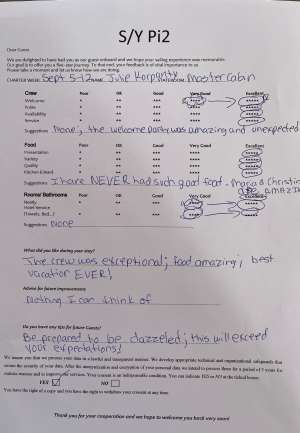 S/Y Pi2
Dear Guest
We are delighted to have had you as our guest onboard and we hope your sailing experience was memorable.
Our goal is to offer you a five-star journey. To that end, your feedback is of vital importance to us.
Please take a moment and let us know how we are doing.
CHARTER WEEK: Sept. 5-12 NAME: Julie STATEROOM: Master Cabin
Crew Poor OK Good Very Good Excellent
Welcome * ** *** **** *****
Polite * ** *** **** *****
Availability * ** *** **** *****
Service * ** *** **** *****
Suggestion: None; the welcome was amazing and unexpected
Food Poor OK Good Very Good Excellent
Presentation * ** *** **** *****
Variety * ** *** **** *****
Quality * ** *** **** *****
Kitchen-Island * ** *** **** *****
Suggestions: I have NEVER had such good food. Maria & Christin
are AMAZI
Rooms/Bathrooms Poor OK Good Very Good Excellent
Neatly * ** *** **** *****
Hotel Service
(Towels, Bed...) * ** *** **** *****
Suggestions: None
What did you like during your stay?
The crew was exceptional; food amazing; best
vacation EVER!
Advice for future improvement:
Nothing I can think of
Do you have any tips for future Guests?
Be prepared to be dazzeled; this will exceed
your expectations!
We assure you that we process your data in a lawful and transparent manner. We develop appropriate technical and organizational safeguards that
ensure the security of your data. After the anonymization and encryption of your personal data we intend to process them for a period of 5 years for
statistic reasons and to improve our services. Your consent is an indispensable condition. You can indicate YES or NO at the ticked boxes:
YES NO
You have the right of a copy and you have the right to withdraw your consent at any time.
Thank you for your cooperation and we hope to welcome you back very soon!